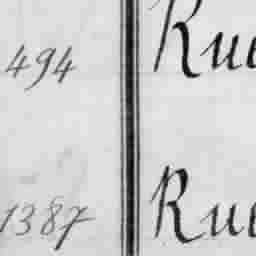 494 Rue
1387 Rue